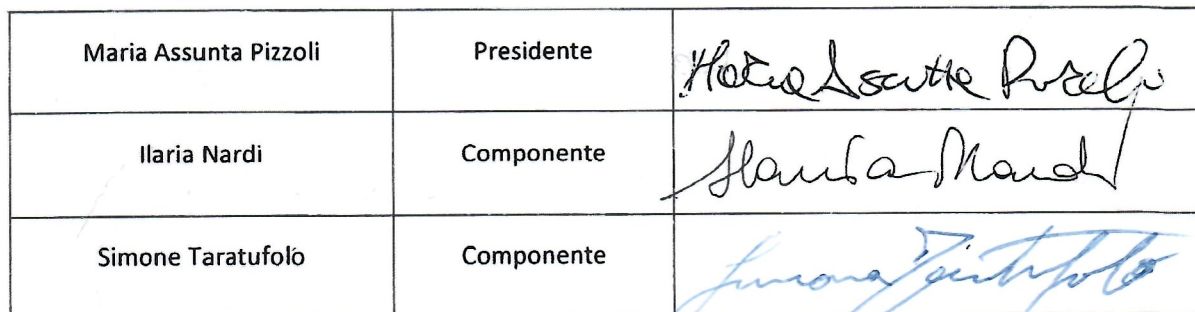 Maria Assunta Pizzoli Presidente Maria Assunta Pizzoli
Ilaria Nardi Componente Ilaria Nardi
Simone Taratufolo Componente Simone Taratufolo